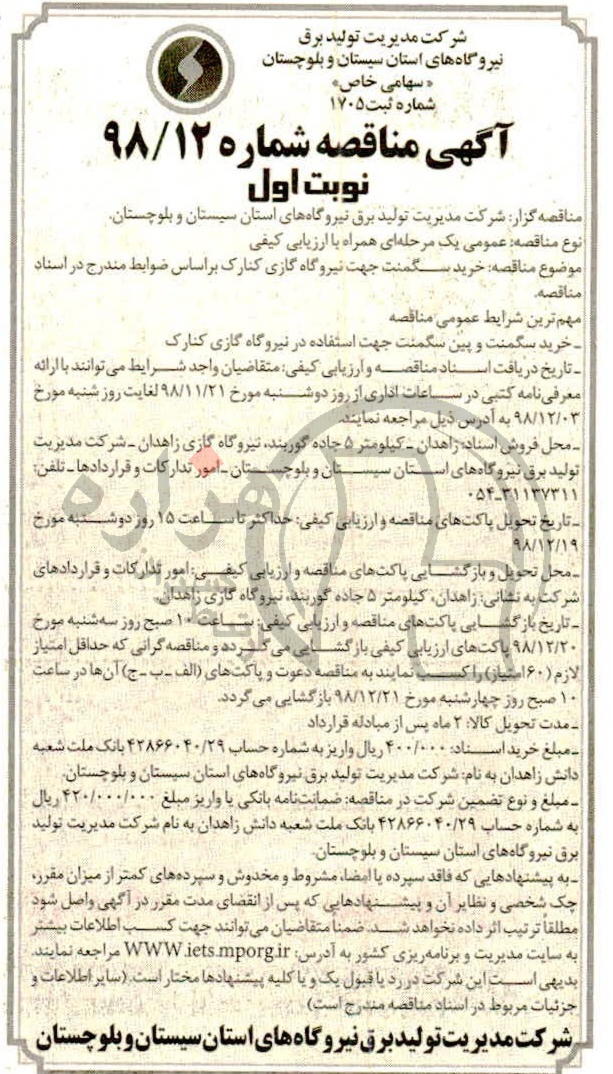 شرکت مدیریت تولید برق
نیروگاه‌های استان سیستان و بلوچستان
« سهامی خاص »
شماره ثبت ۱۷۰۵
آگهی مناقصه شماره ۹۸/۱۲
نوبت اول
مناقصه گزار: شرکت مدیریت تولید برق نیروگاه‌های استان سیستان و بلوچستان.
نوع مناقصه: عمومی یک مرحله‌ای همراه با ارزیابی کیفی
موضوع مناقصه: خرید سگمنت جهت نیروگاه گازی کنارک براساس ضوابط مندرج در اسناد
مناقصه.
مهم‌ترین شرایط عمومی مناقصه
ـ خرید سگمنت و پین سگمنت جهت استفاده در نیروگاه گازی کنارک
ـ تاریخ دریافت اسناد مناقصه و ارزیابی کیفی: متقاضیان واجد شرایط می‌توانند با ارائه
معرفی‌نامه کتبی در ساعات اداری از روز دوشنبه مورخ ۹۸/۱۱/۲۱ لغایت روز شنبه مورخ
۹۸/۱۲/۰۳ به آدرس ذیل مراجعه نمایند.
ـ محل فروش اسناد: زاهدان ـ کیلومتر ۵ جاده گوربند، نیروگاه گازی زاهدان ـ شرکت مدیریت
تولید برق نیروگاه‌های استان سیستان و بلوچستان ـ امور تدارکات و قراردادها ـ تلفن:
۰۵۴-۳۱۱۳۷۳۱۱
ـ تاریخ تحویل پاکت‌های مناقصه و ارزیابی کیفی: حداکثر تا ساعت ۱۵ روز دوشنبه مورخ
۹۸/۱۲/۱۹
ـ محل تحویل و بازگشایی پاکت‌های مناقصه و ارزیابی کیفی: امور تدارکات و قراردادهای
شرکت به نشانی: زاهدان، کیلومتر ۵ جاده گوربند، نیروگاه گازی زاهدان.
ـ تاریخ بازگشایی پاکت‌های مناقصه و ارزیابی کیفی: ساعت ۱۰ صبح روز سه‌شنبه مورخ
۹۸/۱۲/۲۰ پاکت‌های ارزیابی کیفی بازگشایی می‌گردد و مناقصه گرانی که حداقل امتیاز
لازم (۶۰ امتیاز) را کسب نمایند به مناقصه دعوت و پاکت‌های (الف ـ ب ـ ج) آن‌ها در ساعت
۱۰ صبح روز چهارشنبه مورخ ۹۸/۱۲/۲۱ بازگشایی می‌گردد.
ـ مدت تحویل کالا: ۲ ماه پس از مبادله قرارداد
ـ مبلغ خرید اسناد: ۴۰۰/۰۰۰ ریال واریز به شماره حساب ۴۲۸۶۶۰۴۰/۲۹ بانک ملت شعبه
دانش زاهدان به نام: شرکت مدیریت تولید برق نیروگاه‌های استان سیستان و بلوچستان.
ـ مبلغ و نوع تضمین شرکت در مناقصه: ضمانت‌نامه بانکی یا واریز مبلغ ۴۲۰/۰۰۰/۰۰۰ ریال
به شماره حساب ۴۲۸۶۶۰۴۰/۲۹ بانک ملت شعبه دانش زاهدان به نام شرکت مدیریت تولید
برق نیروگاه‌های استان سیستان و بلوچستان.
ـ به پیشنهادهایی که فاقد سپرده یا امضا، مشروط و مخدوش و سپرده‌های کمتر از میزان مقرر،
چک شخصی و نظایر آن و پیشنهادهایی که پس از انقضای مدت مقرر در آگهی واصل شود
مطلقاً ترتیب اثر داده نخواهد شد. ضمناً متقاضیان می‌توانند جهت کسب اطلاعات بیشتر
به سایت مدیریت و برنامه‌ریزی کشور به آدرس: WWW.iets.mporg.ir مراجعه نمایند.
بدیهی است این شرکت در رد یا قبول یک و یا کلیه پیشنهادها مختار است. (سایر اطلاعات و
جزئیات مربوط در اسناد مناقصه مندرج است)
شرکت مدیریت تولید برق نیروگاه‌های استان سیستان و بلوچستان
هزاره